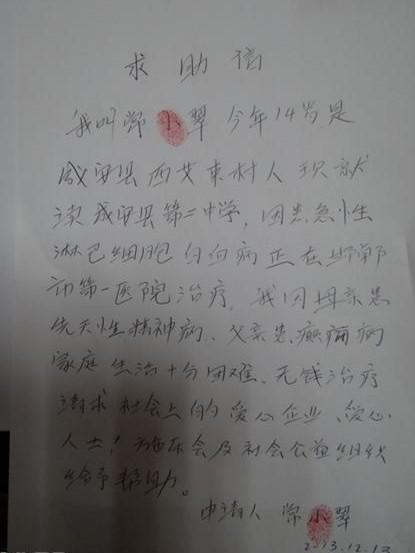 求助信
我叫常小翠 今年14岁是
成安县西艾束村人 现就
读成安县第二中学,因患急性
淋巴细胞白血病正在邯郸
市第一医院治疗,我因母亲患
先天性精神病、父亲患癫痫病
家庭生活十分困难、无钱治疗
请求社会上的爱心企业、爱心
人士!施乐会及社会公益组织
给予帮助。
申请人 常小翠
2013.12.13